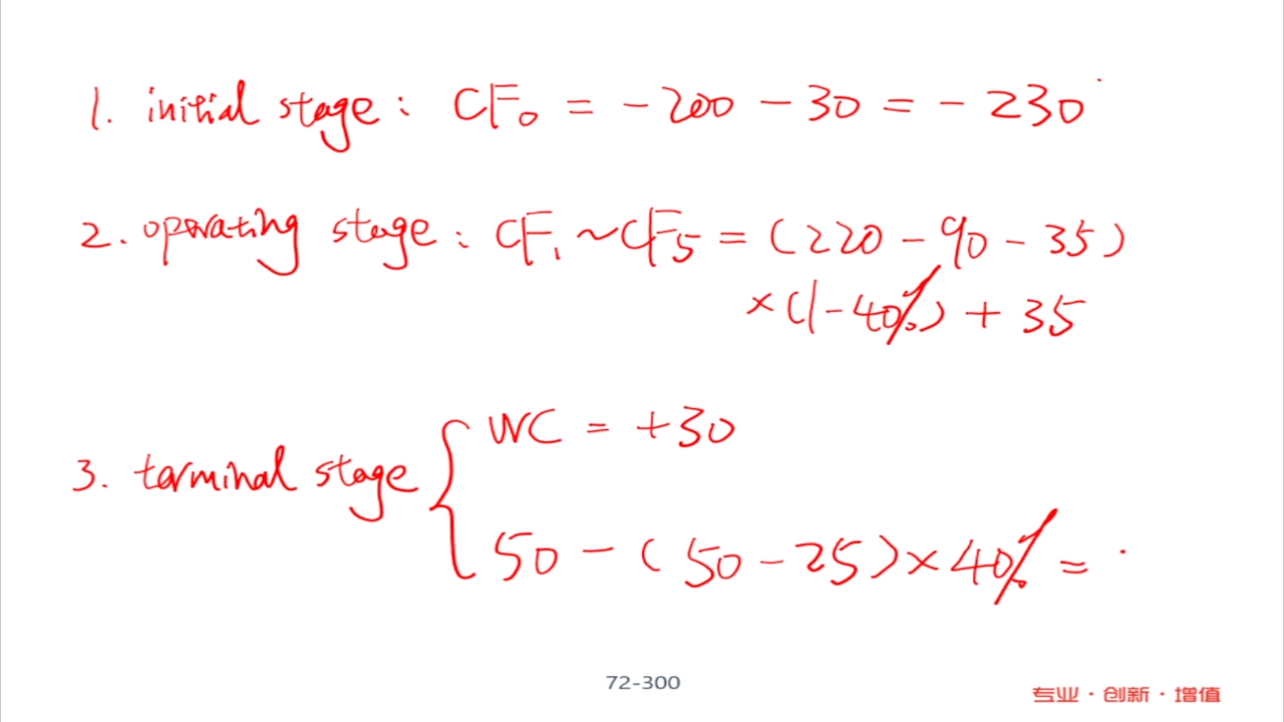 1. initial stage: CF₀ = -200 - 30 = - 230
2. operating stage: CF₁~CF₅ = (220 - 90 - 35)
×(1-40%) + 35
3. terminal stage { WC = +30
50 - (50 - 25)×40% =
72-300
专业·创新·增值